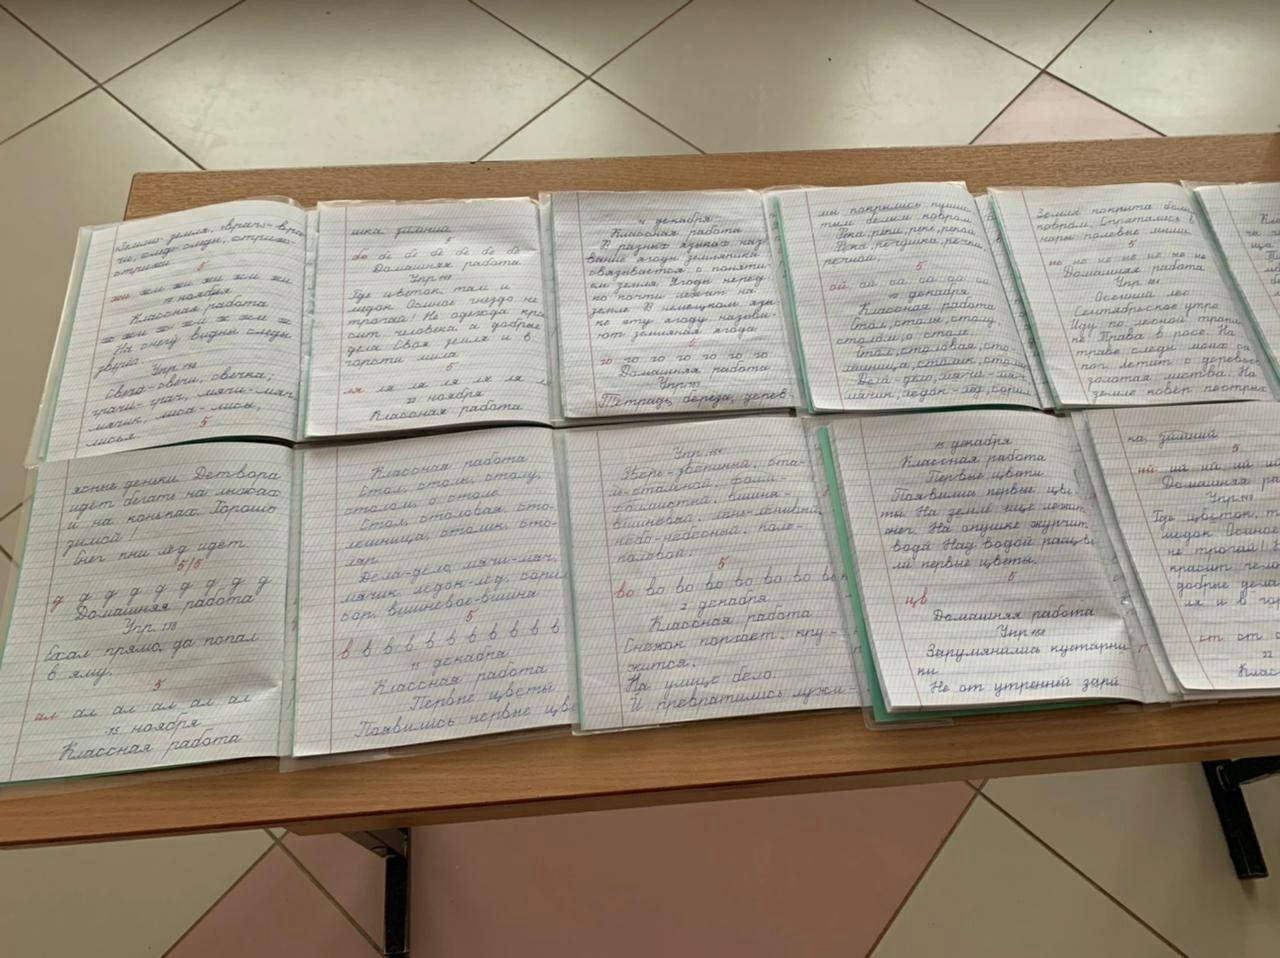 Земля-земля, врачь-вра
чи, след-следы, стрижи-
стрижи
5
жи жи жи жи жи жи
ноября
Классная работа
ж жи ж жи ж жи ж
На снегу видны следы
зверя.
Упр.
Свеча-свечи, свечка,
грачи-грач, мячи-мяч,
мячик, лиса-лисы,
лисья
5
шка зимний
5
бе бе бе бе бе бе бе
Домашняя работа
Упр
Где цветок, там и
медок. Осиное гнездо не
трогай! Не одежда кра
сит человека, а добрые
дела. Своя земля и в
горсти мила
5
ля ля ля ля ля ля
22 ноября
Классная работа
4 декабря
Классная работа
В разных языках наз-
вание ягоды земляника
связывается с поняти
ем земля. Ягоды перед-
ко почти лежат на
земле. В немецком язы
ке эту ягоду называ-
ют земляная ягода
5
го го го го го го го
Домашняя работа
Упр
Тетрадь, береза, дерев
мы покрылись пуши
тым белым ковром.
Река, реки, реке, рекой
Река, речушка, речка,
речной.
5
ой ой ой ой ой ой
декабря
Классная работа
Стол, столы, столу,
столом, о столе
Стол, столовая, сто
лешница, столик, столяр
Дела-дело, мячи-мяч,
мячик, ледок-лёд, сорил
Земля покрыта белы
ковром. Спрятались в
норы полевые мыши
5
но но не не не не не
Домашняя работа
Упр
Осенний лес
Сентябрьское утро
Иду по лесной тропи
не. Трава в росе. На
траве следы моих са
пог. Летит с деревьев
золотая листва. На
земле ковёр пёстрых
ясные деньки. Детвора
идёт бегать на лыжах
и на коньках. Хорошо
зимой!
Снег пни лёд идёт.
5/5
д д д д д д д д д
Домашняя работа
Упр. 118
Ехал прямо, да попал
в яму.
5
ал ал ал ал ал ал
15 ноября
Классная работа
Классная работа
Стол, столы, столу,
столом, о столе
Стол, столовая, сто-
лешница, столик, сто-
ляр
Дела-дело, мячи-мяч,
мячик, ледок-лёд, сорил
сор, вишнёвое-вишня
5
в в в в в в в в в в
15 декабря
Классная работа
Первые цветы
Появились первые цве
Упр.
Зверь-звериный, ста-
ль-стальной,
вишня-
вишнёвый, лень-ленивый,
небо-небесный, поле-
полевой.
5
во во во во во во во во
2 декабря
Классная работа
Снежок порхает, кру-
жится.
На улице бело.
И превратились лужи-
15 декабря
Классная работа
Первые цветы
Появились первые цве
ты. На земле еще лежит
снег. На опушке журчит
вода. Над водой расцве
ли первые цветы.
5
цв
Домашняя работа
Упр
Зарумянились кустарни
ки
Не от утренней зари
ка, зимний
5
ий ий ий ий ий
Домашняя ра
Упр
Где цветок, т
медок. Осиное
не трогай! Н
красит чело
добрые дела
ля и в гор
ст от о
22
Класс